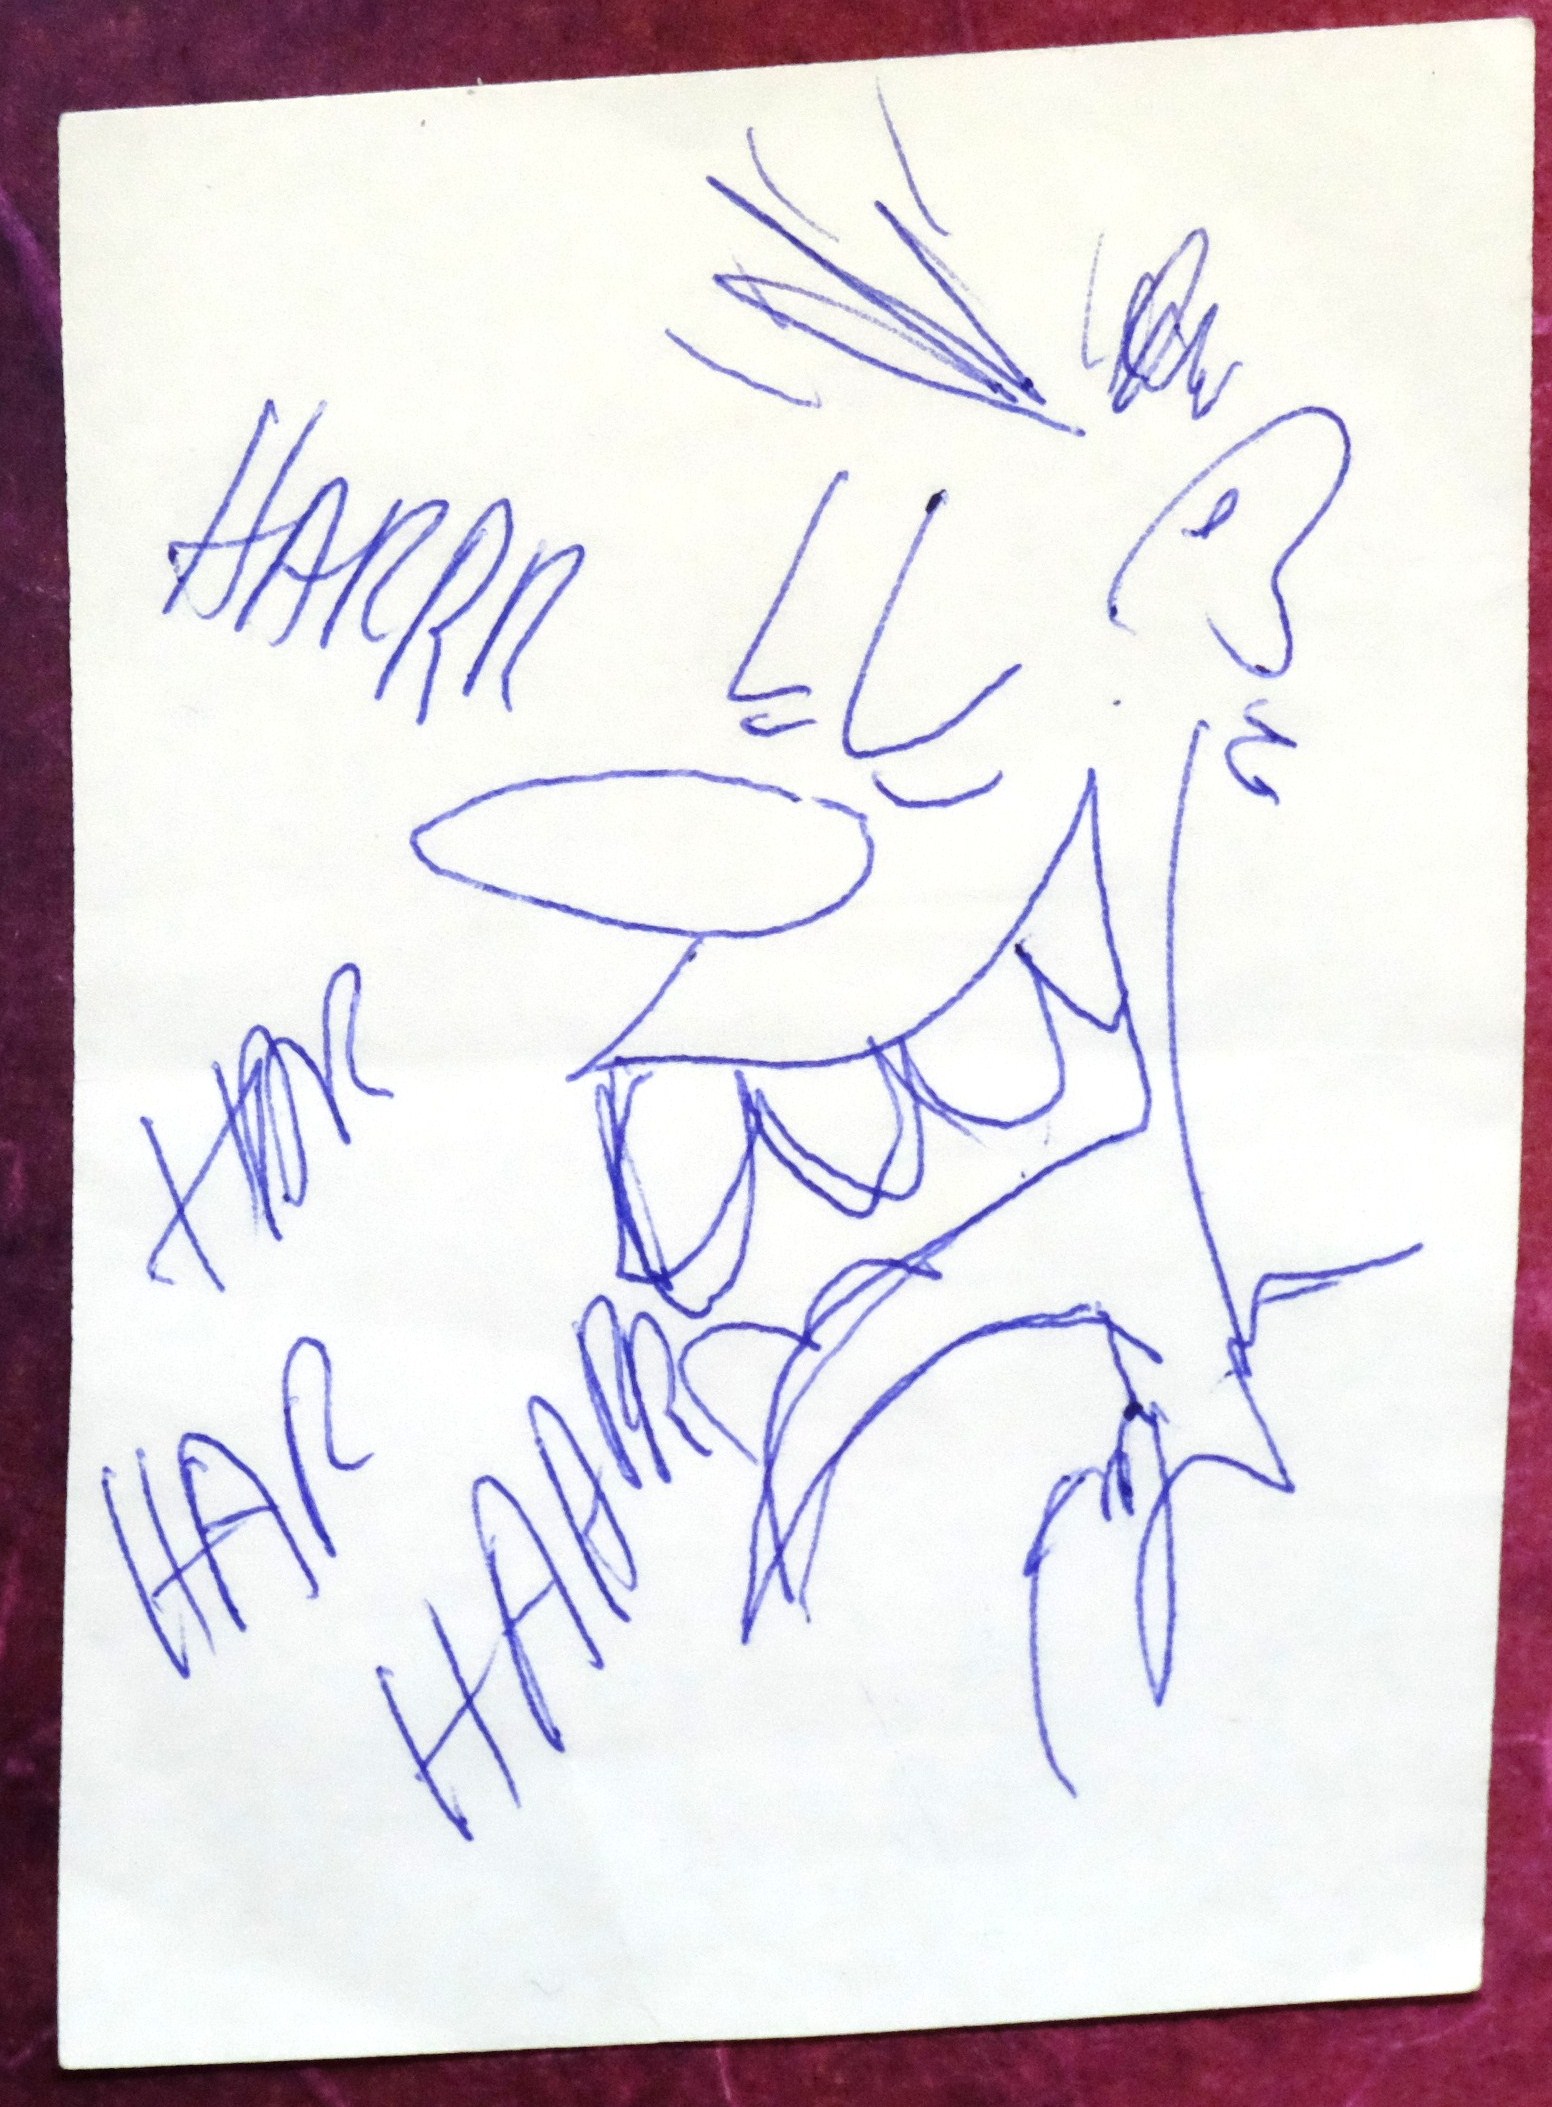 HARRR
HAR
HAR
HAARR